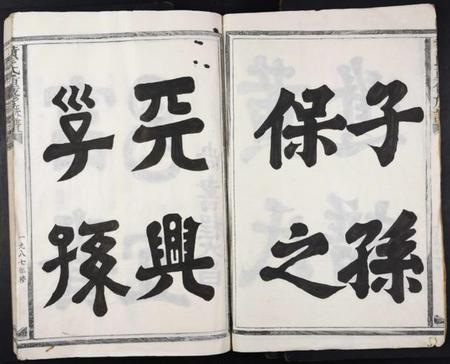 子孫
保之
元興
㜽孫
一九八七年修